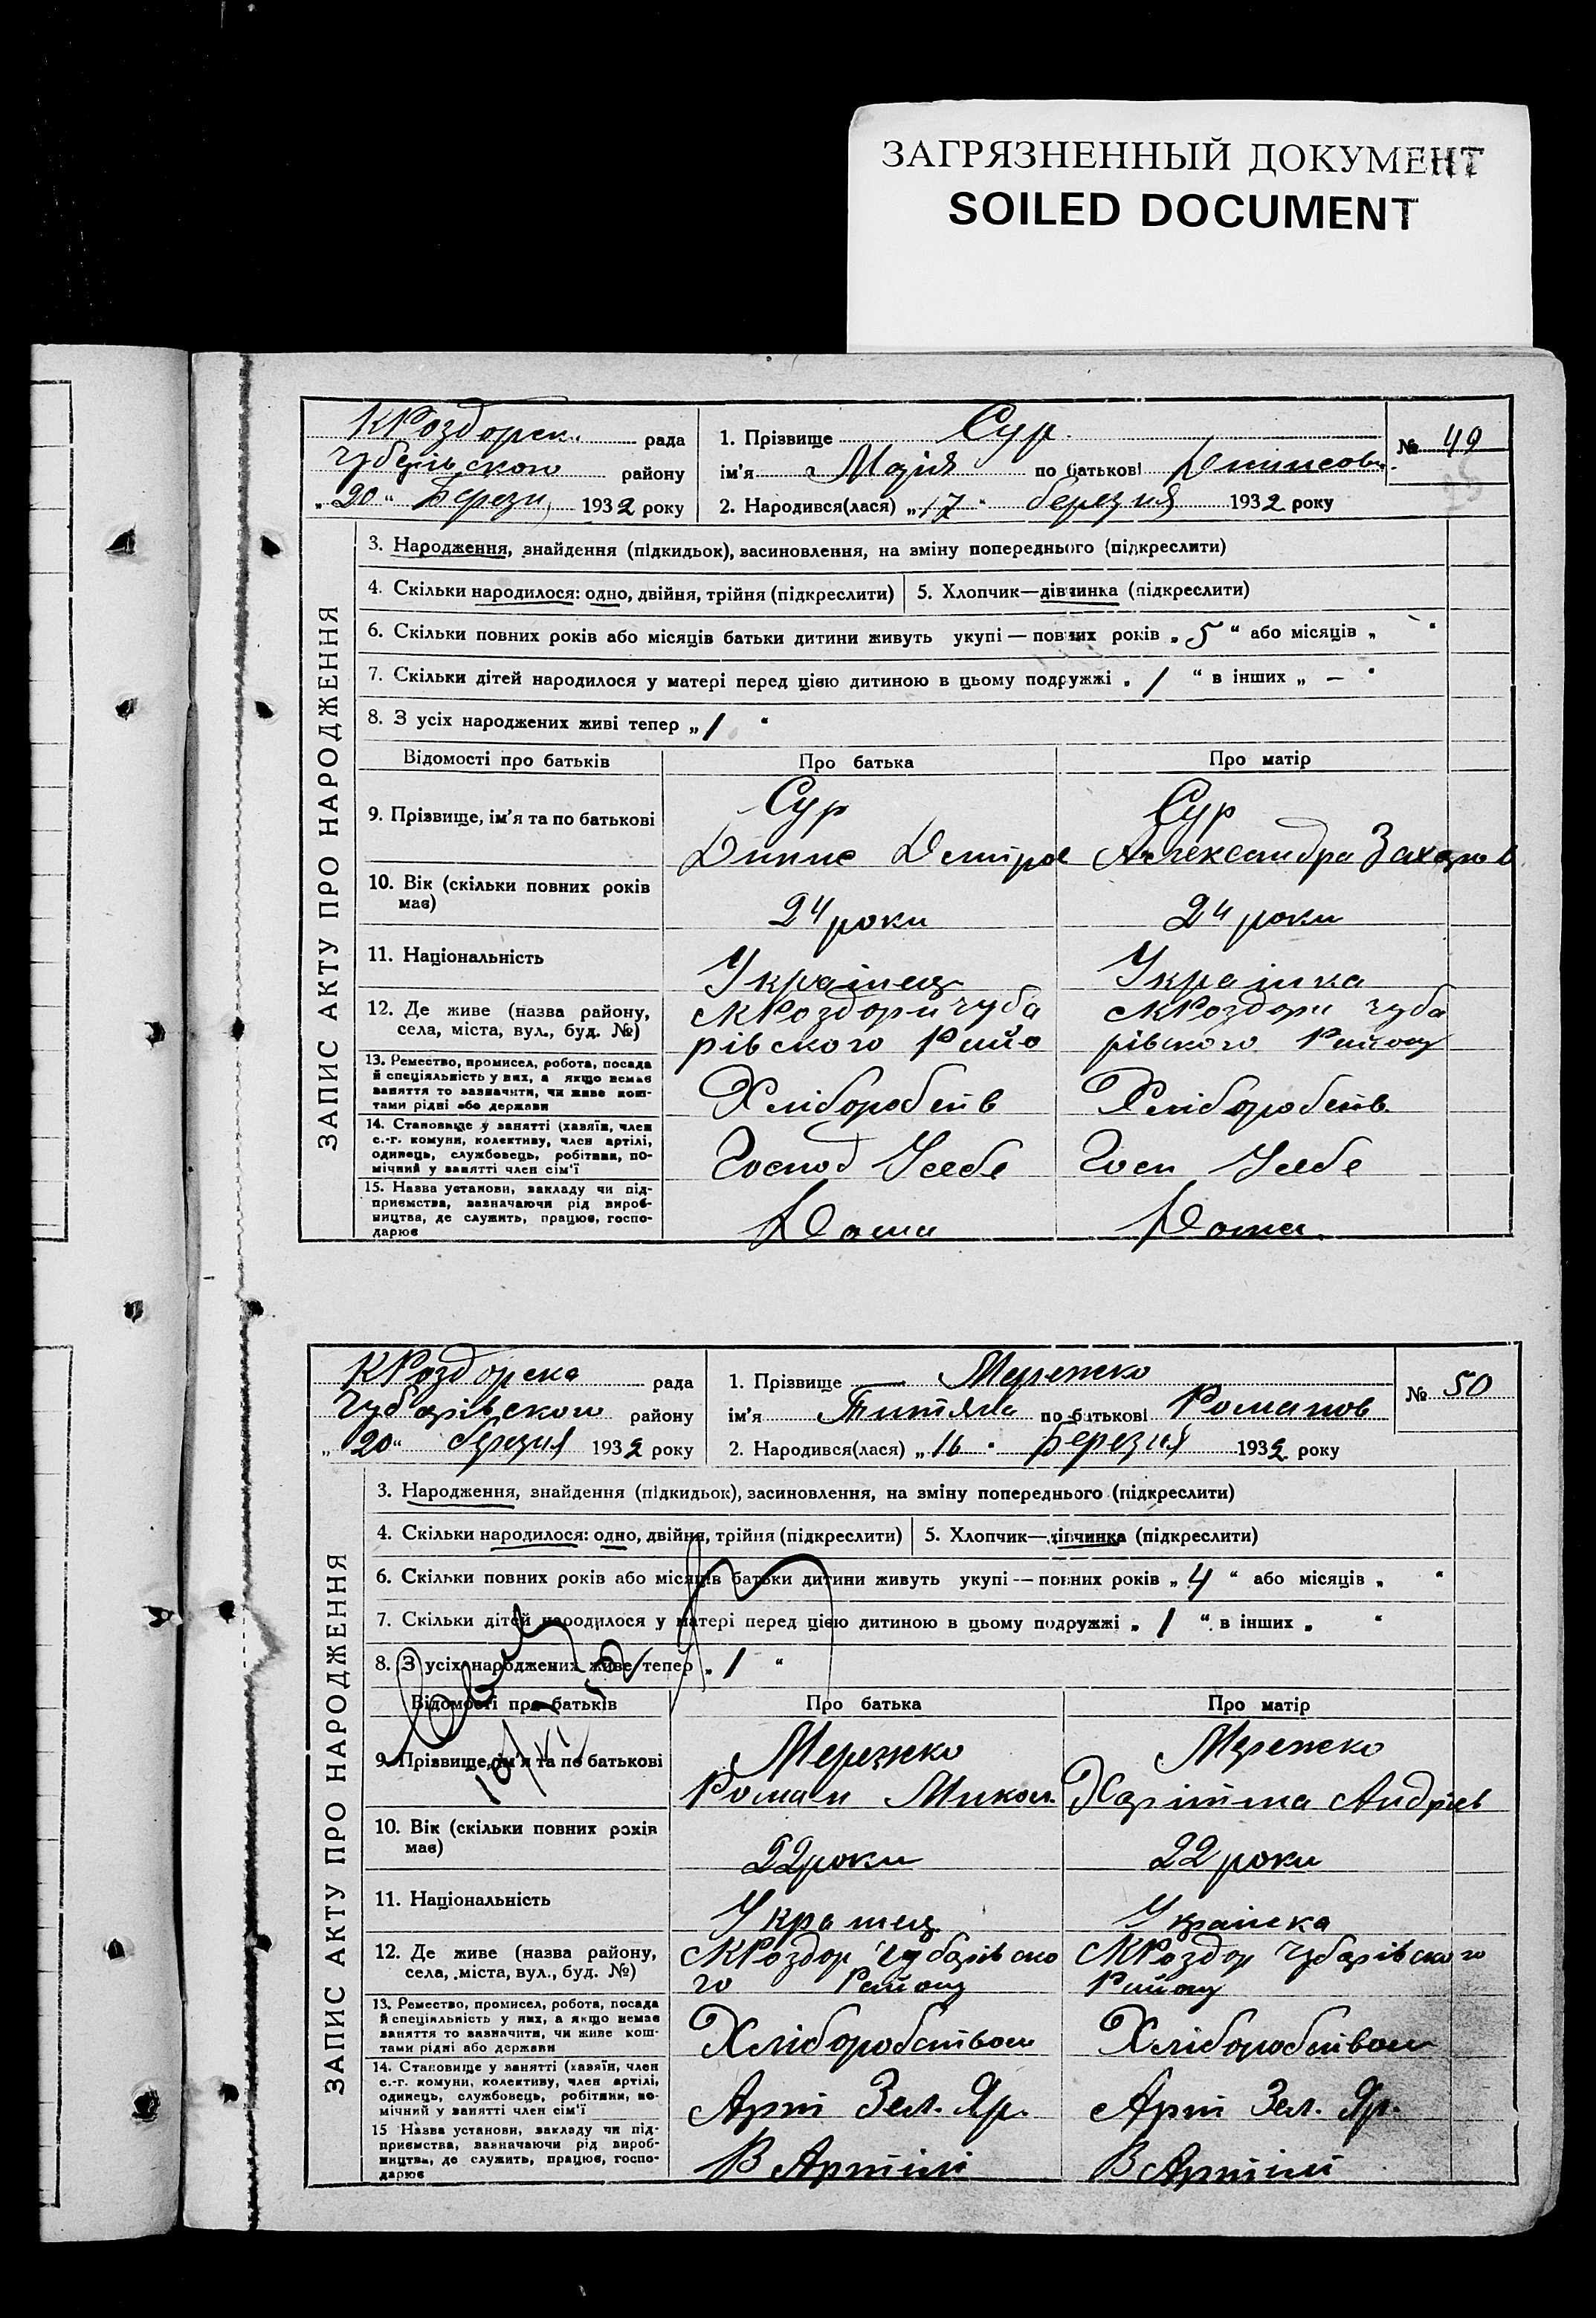 ЗАГРЯЗНЕННЫЙ ДОКУМЕНТ
SOILED DOCUMENT
КРоздорск. рада
району
"20" Березн 1932 року
1. Прізвище Сур
ім'я Марія по батькові Денисов.
2. Народився(лася) „17" березня 1932 року
№ 49
ЗАПИС АКТУ ПРО НАРОДЖЕННЯ
3. Народження, знайдення (підкидьок), засиновлення, на зміну попереднього (підкреслити)
4. Скільки народилося: одно, двійня, трійня (підкреслити) 5. Хлопчик—дівчинка (підкреслити)
6. Скільки повних років або місяців батьки дитини живуть укупі — повних років „5" або місяців „ "
7. Скільки дітей народилося у матері перед цією дитиною в цьому подружжі „1" в інших „—"
8. З усіх народжених живі тепер „1"
Відомості про батьків Про батька Про матір
9. Прізвище, ім'я та по батькові
Сур Сур
Динис Дмитров Александра Захаров
10. Вік (скільки повних років
має)
24 роки 24 роки
11. Національність
Українец Українка
12. Де живе (назва району,
села, міста, вул., буд. №)
сКРоздори чуба сКРоздори чуба
рівского Райо рівского Району
13. Ремество, промисел, робота, посада
й спеціяльність у них, а якщо немає
заняття то зазначити, чи живе кош-
тами рідні або держави
Хліборобств Хліборобств.
14. Становище у занятті (хазяїн, член
с.-г. комуни, колективу, член артілі,
одинець, службовець, робітник, по-
мічний у занятті член сім'ї
Господ Усебе Госп Усебе
15. Назва установи, закладу чи під-
приємства, зазначаючи рід вироб-
ництва, де служить, працює, госпо-
дарює
Дома Дома.
КРоздорска рада
Чубарівского району
„20" березня 1932 року
1. Прізвище Мережко
ім'я Титяна по батькові Романов
2. Народився(лася) „16" Березня 1932 року
№ 50
ЗАПИС АКТУ ПРО НАРОДЖЕННЯ
3. Народження, знайдення (підкидьок), засиновлення, на зміну попереднього (підкреслити)
4. Скільки народилося: одно, двійня, трійня (підкреслити) 5. Хлопчик—дівчинка (підкреслити)
6. Скільки повних років або місяців батьки дитини живуть укупі — повних років „4" або місяців „ "
7. Скільки дітей народилося у матері перед цією дитиною в цьому подружжі „1" в інших „ "
8. З усіх народжених живе тепер „1"
Відомості про батьків Про батька Про матір
9. Прізвище, ім'я та по батькові
Мережко Мережко
Роман Микол. Харитина Андріев
10. Вік (скільки повних років
має)
22 роки 22 роки
11. Національність
Українец Українка
12. Де живе (назва району,
села, міста, вул., буд. №)
сКРоздор Чубарівско сКРоздор Чубарівского
го Району Району
13. Ремество, промисел, робота, посада
й спеціяльність у них, а якщо немає
заняття то зазначити, чи живе кош-
тами рідні або держави
Хліборобством Хліборобством
14. Становище у занятті (хазяїн, член
с.-г. комуни, колективу, член артілі,
одинець, службовець, робітник, по-
мічний у занятті член сім'ї
Арті Зел. Яр. Арті Зел. Яр.
15 Назва установи, закладу чи під-
приємства, зазначаючи рід вироб-
ництва, де служить, працює, госпо-
дарює
В Артілі В Артілі